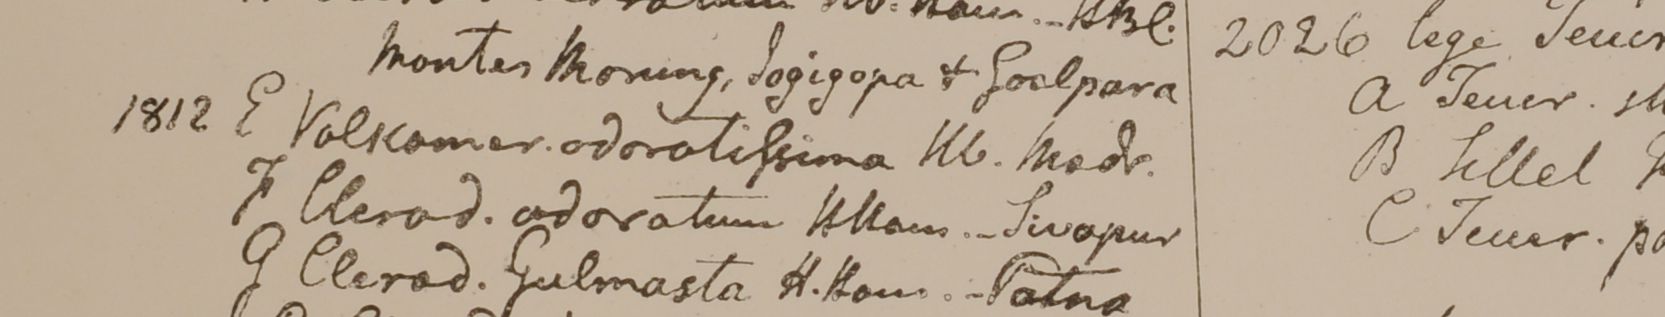 HBl.
Montes Morung, Jogigopa & Goalpara
1812 E Volkamer. odoratissima Hb. Madr.
F Clerod. odoratum HHam. - Sivapur
G Clerod. Gulmasta H. Ham. - Patna
2026 lege Teucr
A Teucr.
B
C Teucr.